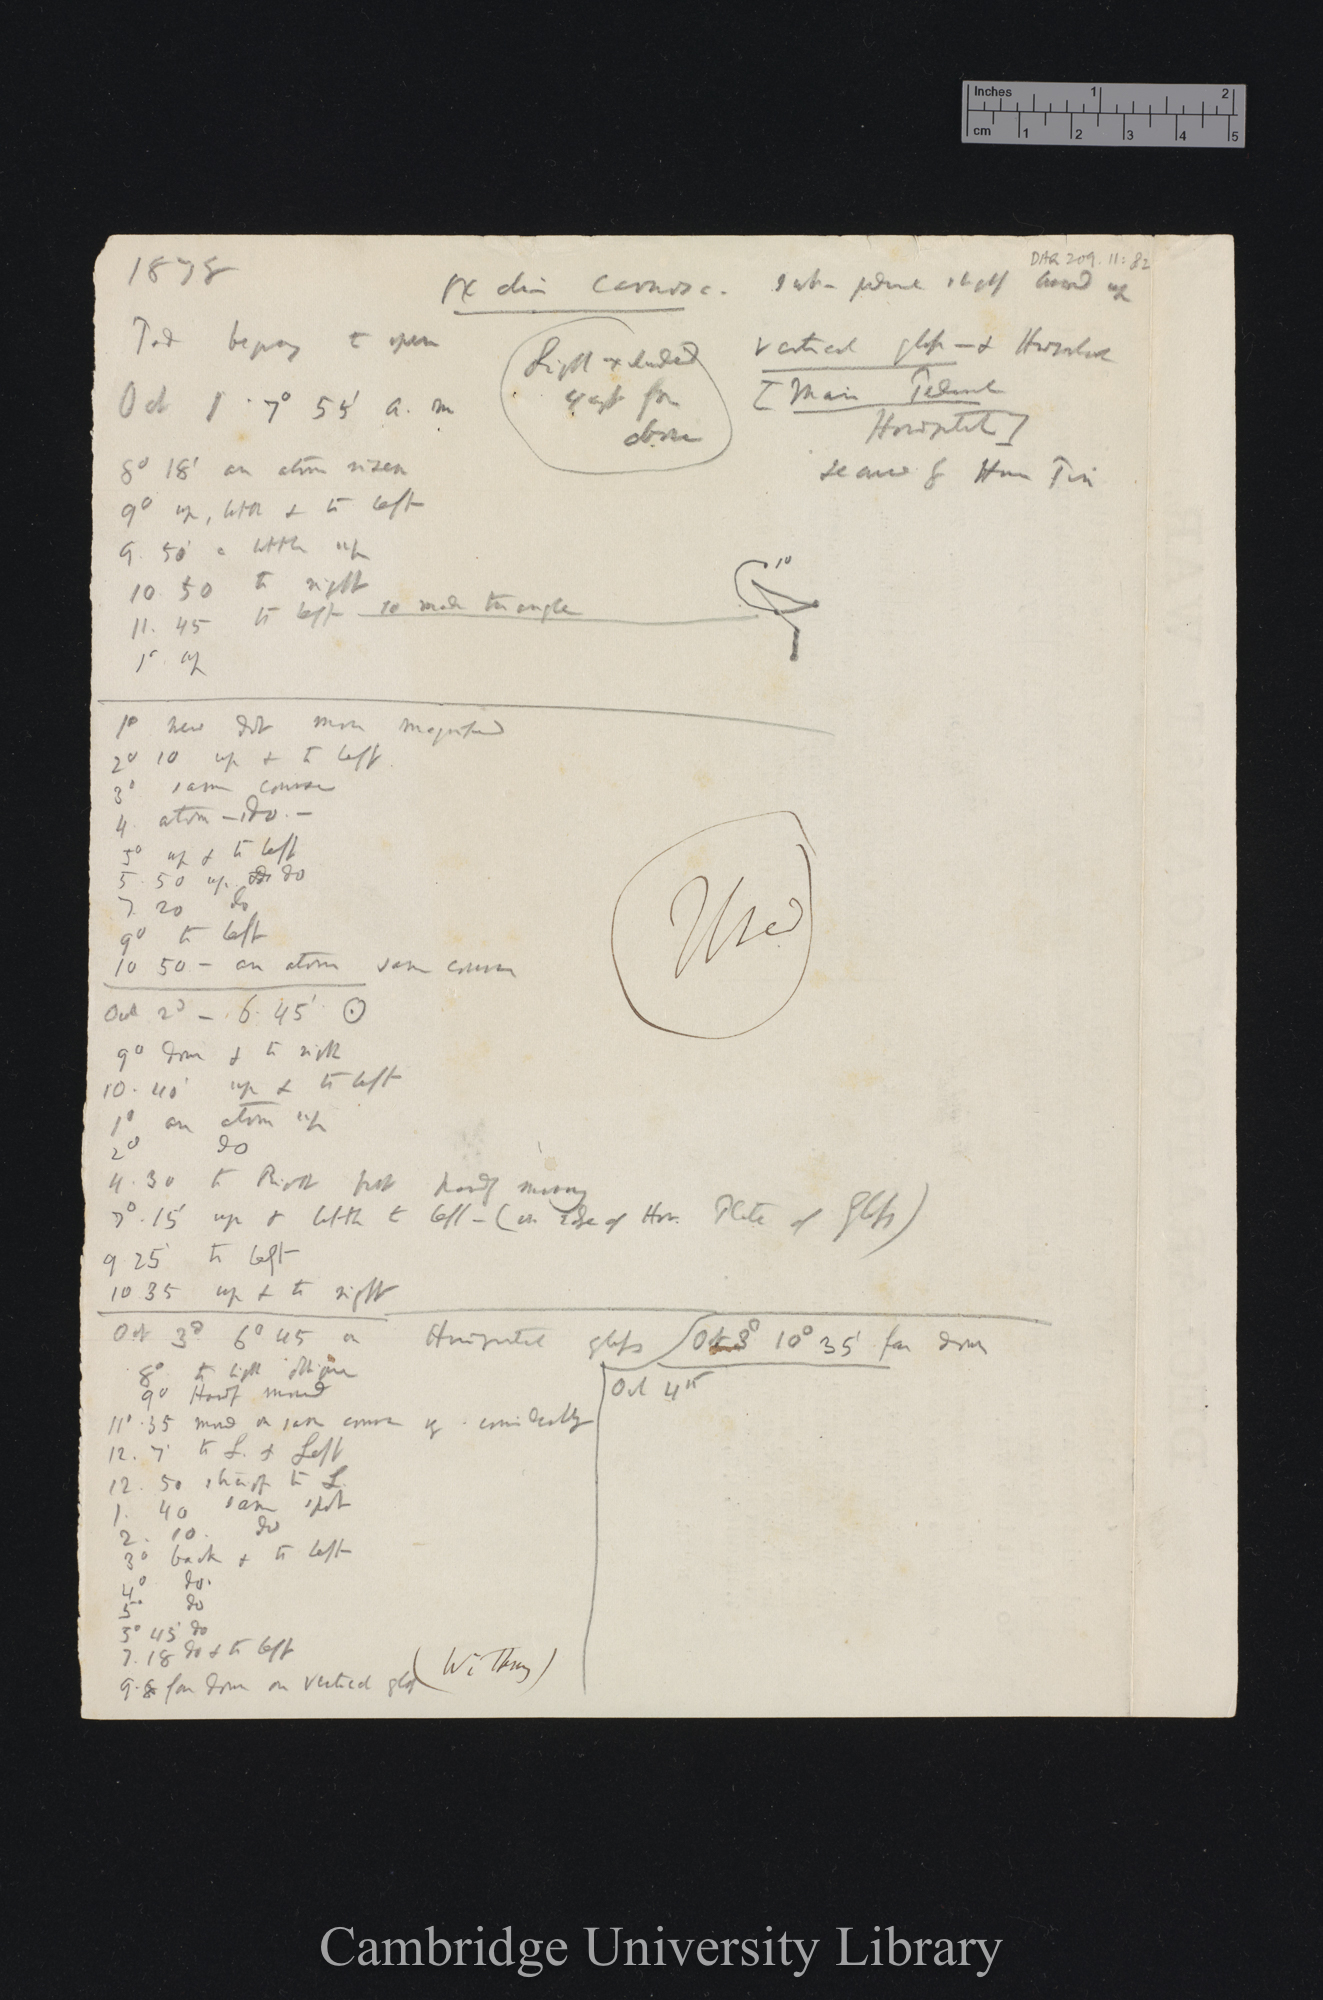 Inches 1 2
cm 1 2 3 4 5
DAR 209.11: 82
1878
Oxalis carnosa. Sub-peduncle slightly curved up
Pod begins to open
Light excluded
except from
above
vertical glass — & Horizontal
[Main Peduncle
Horizontal]
Oct 1. 7° 55' a. m
8° 18' an atom risen
9° up, little & to left
9. 50' a little up
10 50 to right
10
11. 45 to left so made triangle
1° up
1° new dot more magnified
2° 10 up & to left
3° same course
4. atom — do. —
5° up & to left
5. 50 up do
7. 20 do
9° to left
10 50 — an atom same course
Used
Oct 2° — 6. 45' ⊙
9° down & to right
10. 40' up & to left
1° an atom up
2° do
4. 30 to Right but hardly moving
7°. 15' up & little to left — (on edge of Hor. Plate of Glass)
9 25' to left
10 35 up & to right
Oct 3° 6° 45 on Horizontal glass
Oct 3° 10° 35' far down
8° to light oblique
9° Hardly moved
Oct 4th
11°. 35 moved on same course considerably
12. 7' to L. & Left
12. 50 straight to L.
1. 40 same spot
2. 10. do
3° back & to left
4° do.
5° do
5° 45' do
7. 18 do & to left
9. 8 far down on vertical glass